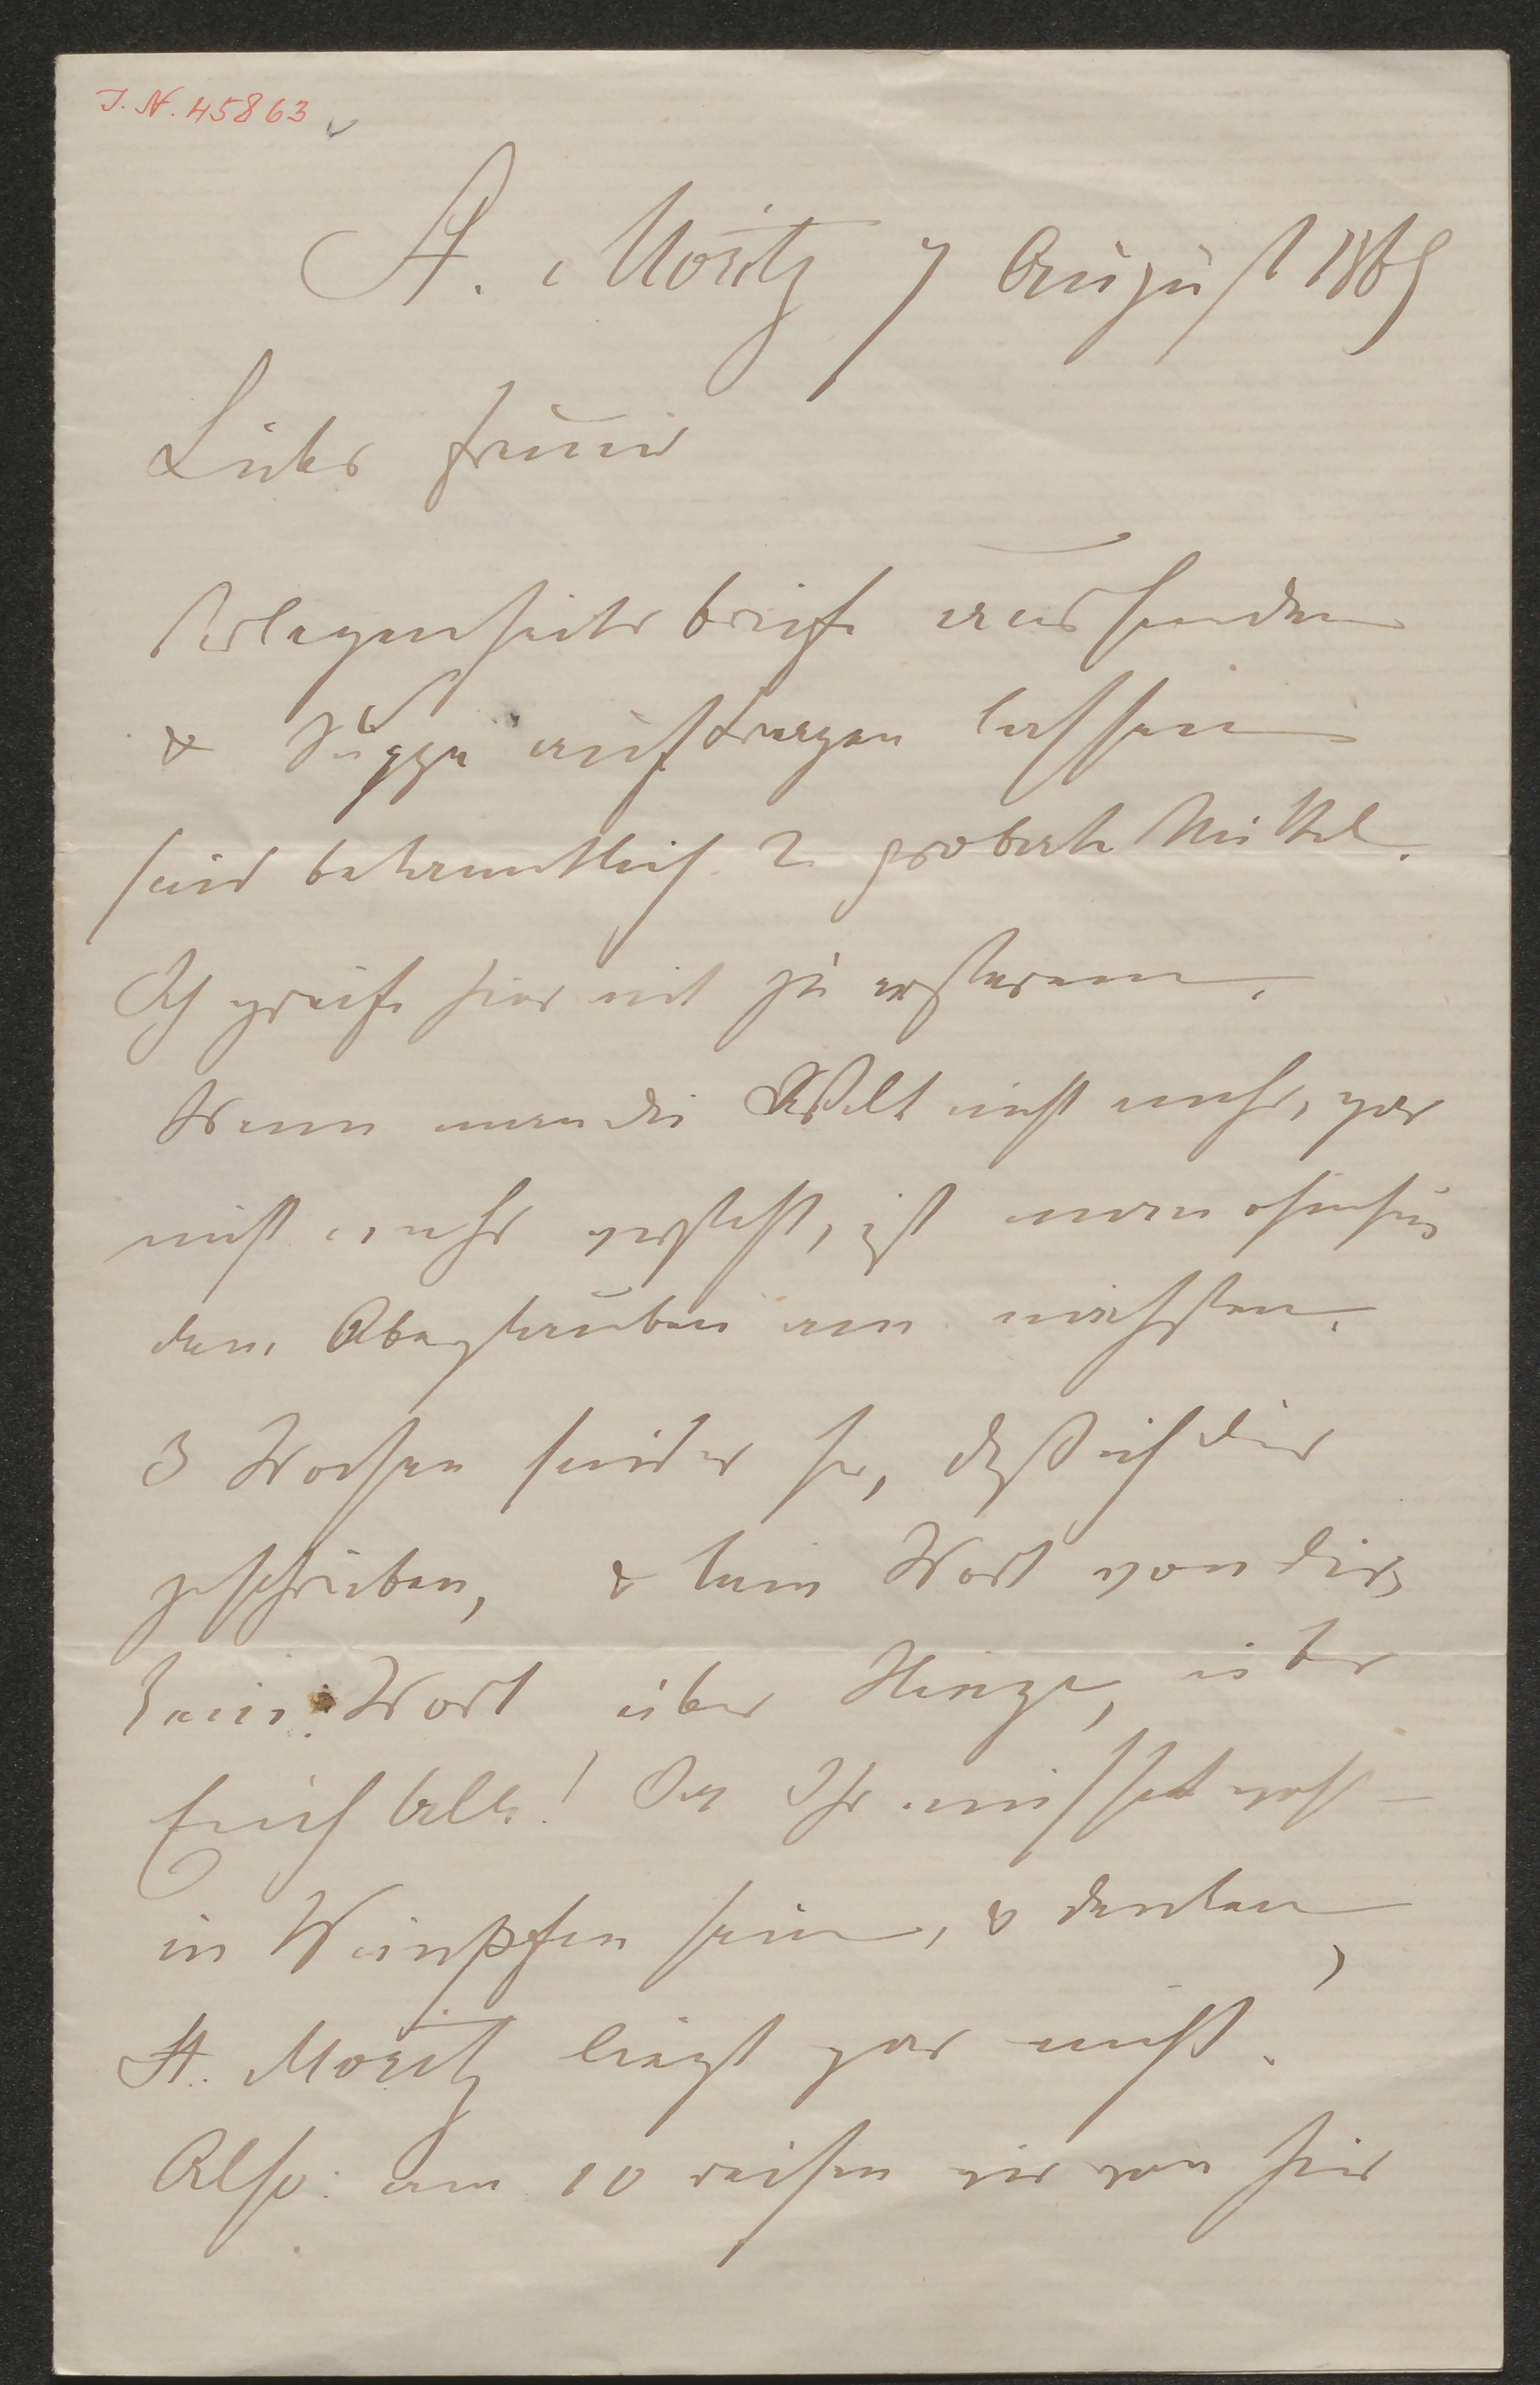 J. N. 45863
St. Moritz 7 August 1869
Lieber Freund
Verlegenheitsbriefe aussenden
& Suppe auftragen lassen
sind bekanntlich 2 probate Mittel.
Ich greife hier mit zu ersterem.
Wenn man die Welt nicht mehr, gar
nicht mehr versteht, ist man ohnehin
dem Aberglauben am nächsten.
3 Wochen sind es her, daß ich dir
geschrieben, & kein Wort von dir,
kein Wort über Kinze, über
Euch Alle! Da Ihr müsset wohl
in Wimpfen sein, & denken,
St. Moritz liegt gar nicht.
Also: am 10 reisen wir von hier